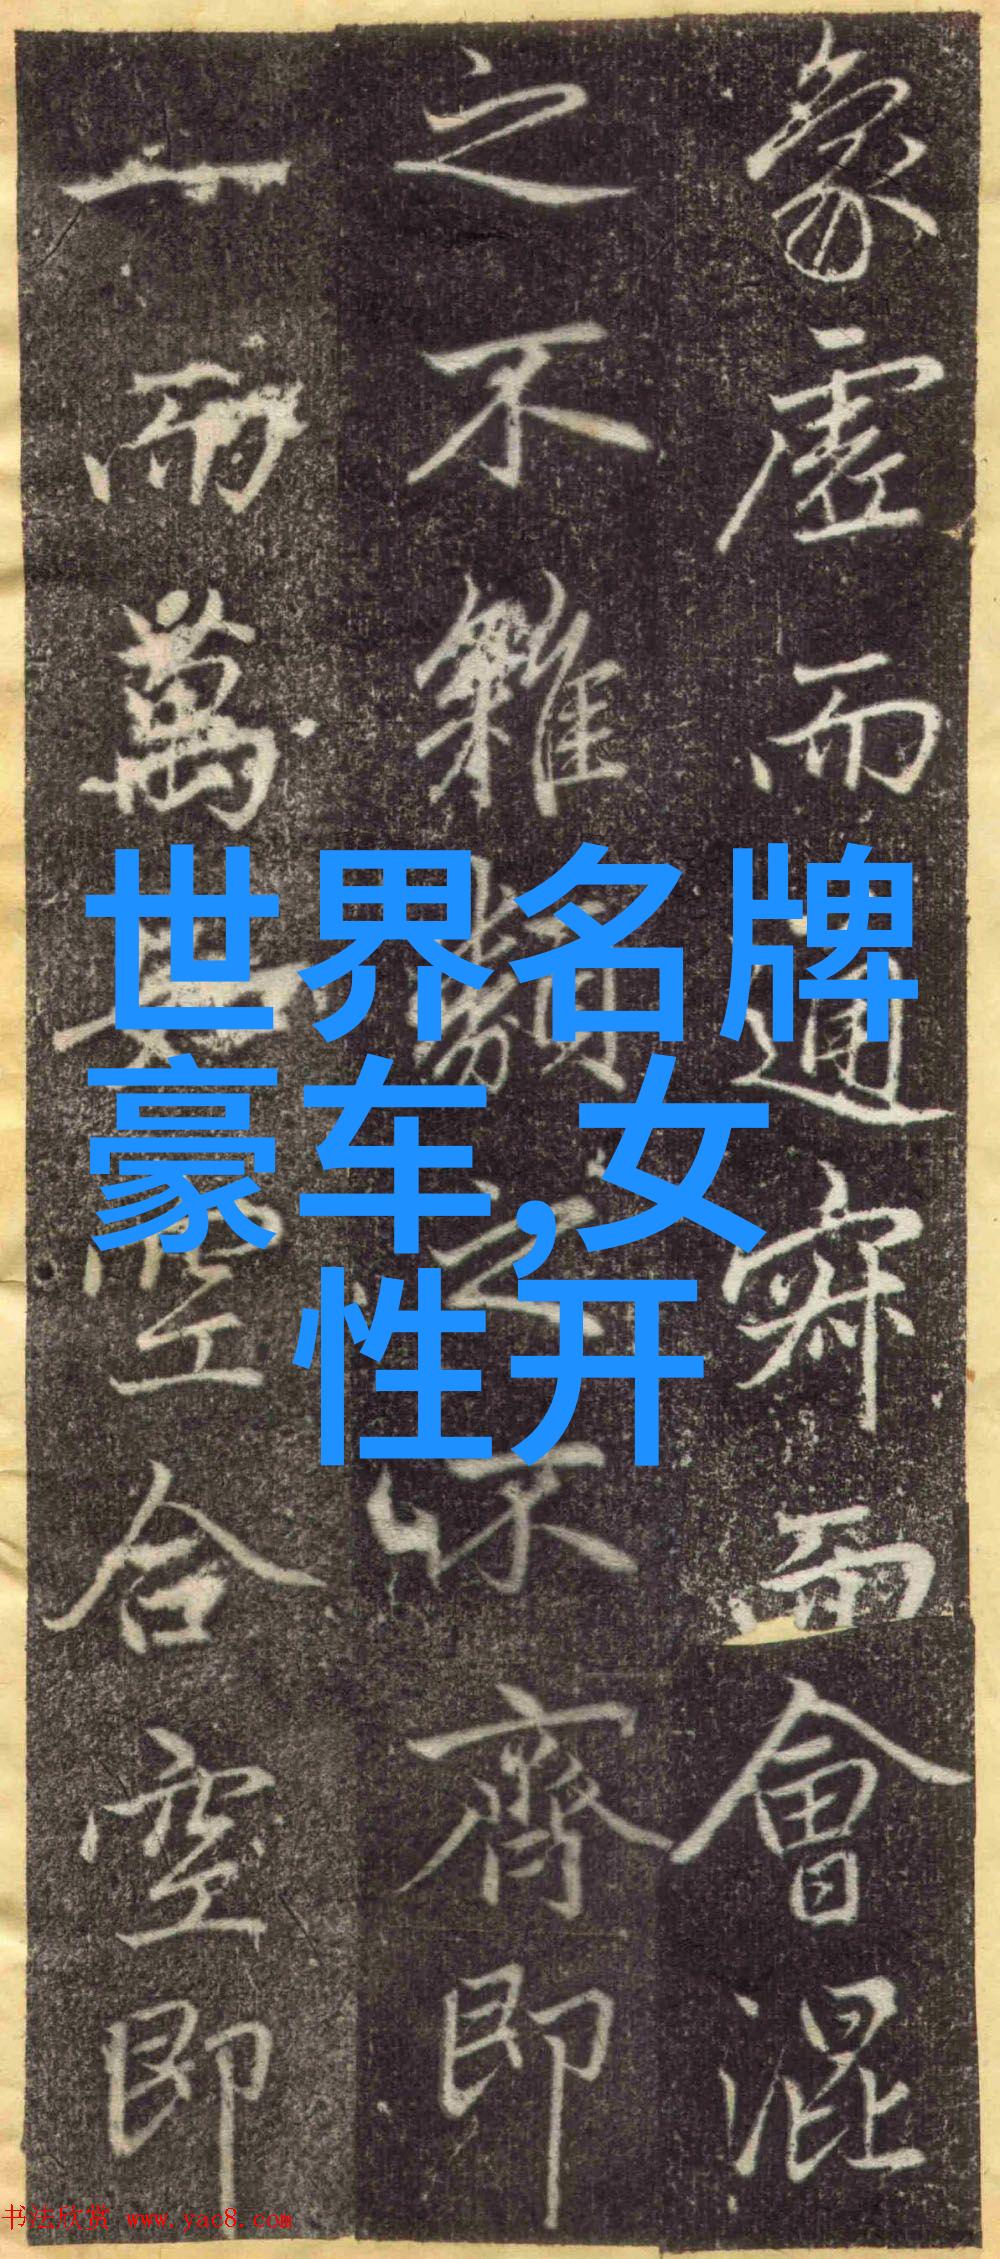 象虛而通寂而會混
之不雜類之不齊即
一而萬如空合空即
世界名牌
豪车,女
性开
书法欣赏 www.yac8.com